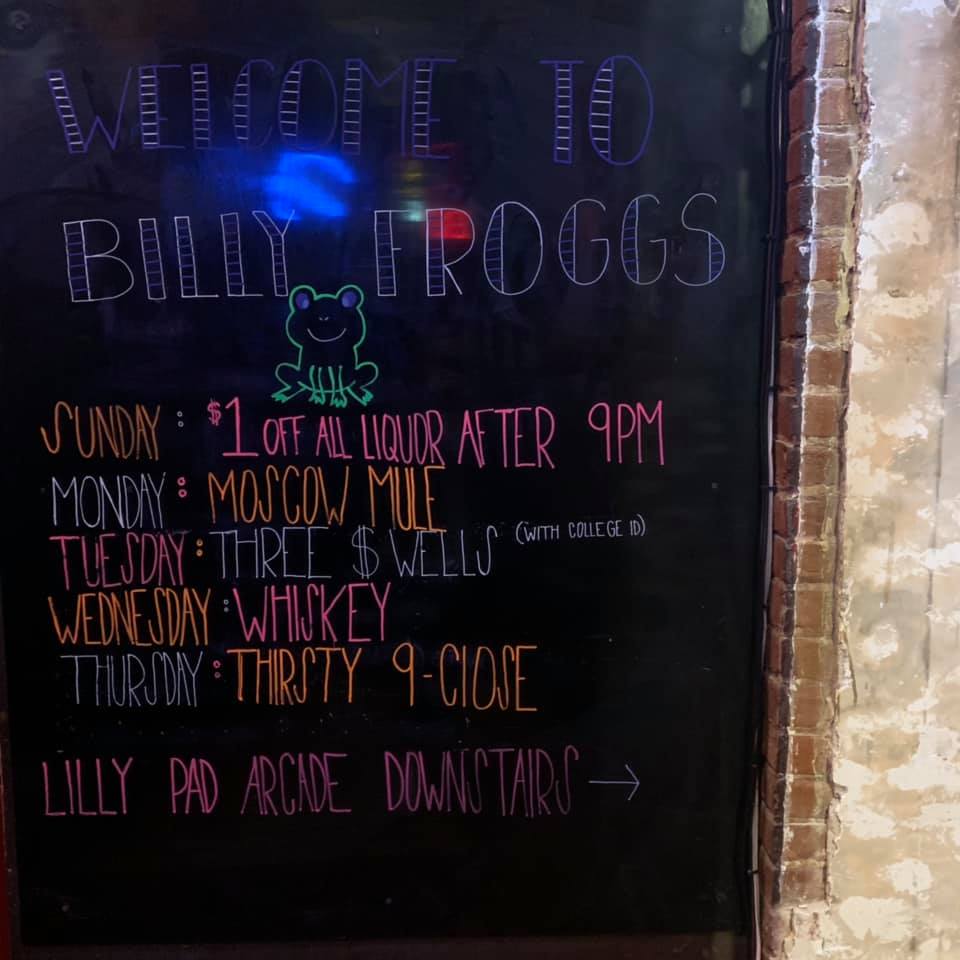 WELCOME TO
BILLY FROGGS
SUNDAY: $1 OFF ALL LIQUOR AFTER 9PM
MONDAY: MOSCOW MULE
TUESDAY: THREE $ WELLS (WITH COLLEGE ID)
WEDNESDAY: WHISKEY
THURSDAY: THIRSTY 9-CLOSE
LILLY PAD ARCADE DOWNSTAIRS →